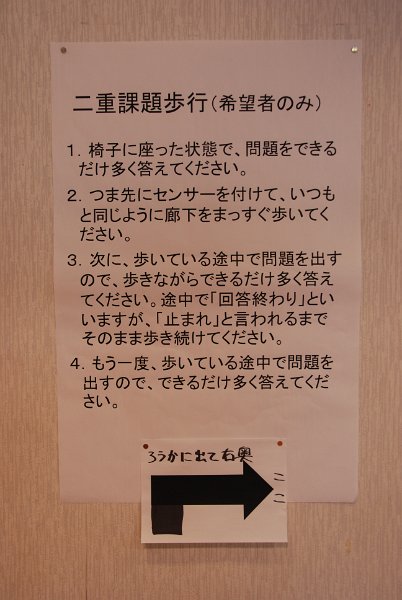 二重課題歩行(希望者のみ)
1. 椅子に座った状態で、問題をできる
だけ多く答えてください。
2. つま先にセンサーを付けて、いつも
と同じように廊下をまっすぐ歩いてく
ださい。
3. 次に、歩いている途中で問題を出す
ので、歩きながらできるだけ多く答え
てください。途中で「回答終わり」とい
いますが、「止まれ」と言われるまで
そのまま歩き続けてください。
4. もう一度、歩いている途中で問題を
出すので、できるだけ多く答えてくだ
さい。
ろうかに出て右奥
ここ